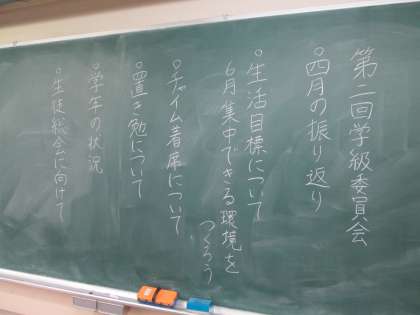 第二回学級委員会
◦四月の振り返り
◦生活目標について
6月集中できる環境を
つくろう
◦チャイム着席について
◦置き勉について
◦学年の状況
◦生徒総会に向けて